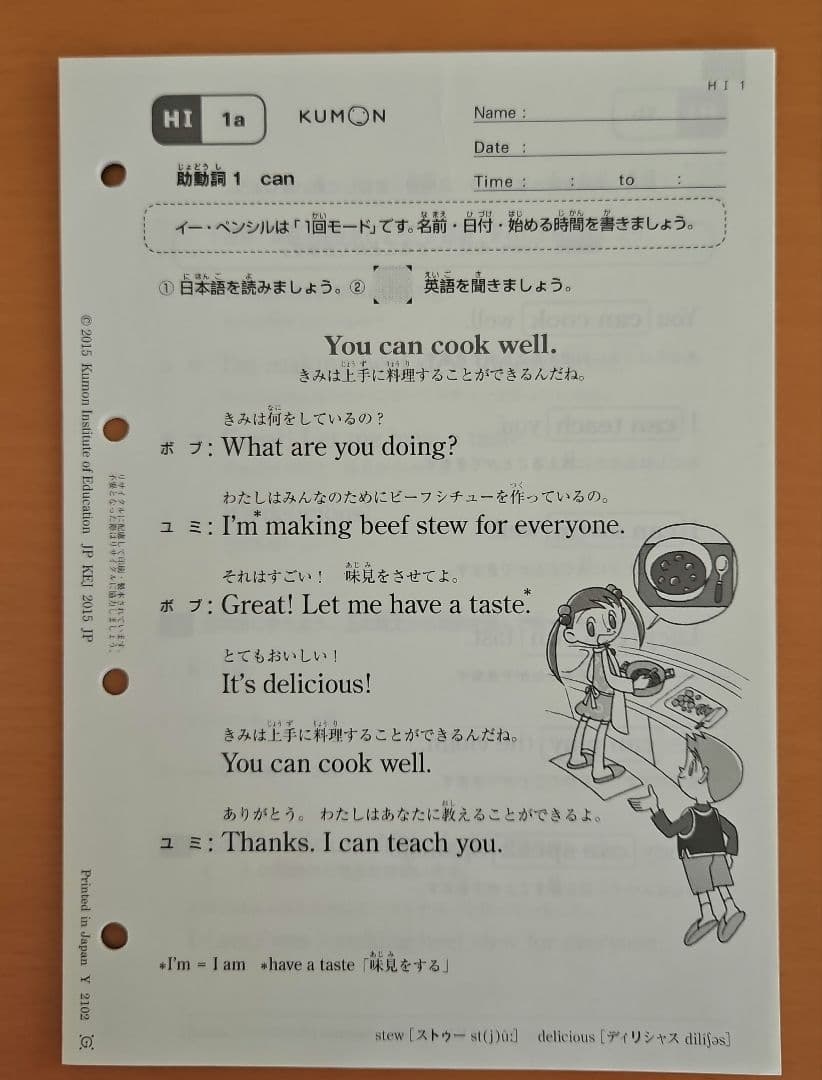 HI 1
HI 1a
KUMON
Name :
Date :
Time : : to :
助動詞1 can
イー・ペンシルは「1回モード」です。名前・日付・始める時間を書きましょう。
① 日本語を読みましょう。② 英語を聞きましょう。
You can cook well.
きみは上手に料理することができるんだね。
きみは何をしているの?
ボ ブ: What are you doing?
わたしはみんなのためにビーフシチューを作っているの。
ユ ミ: I'm* making beef stew for everyone.
それはすごい! 味見をさせてよ。
ボ ブ: Great! Let me have a taste.*
とてもおいしい!
It's delicious!
きみは上手に料理することができるんだね。
You can cook well.
ありがとう。 わたしはあなたに教えることができるよ。
ユ ミ: Thanks. I can teach you.
*I'm = I am *have a taste「味見をする」
stew [ストゥー st(j)ú:] delicious [ディリシャス dilíʃəs]
© 2015 Kumon Institute of Education JP KEI 2015 JP
Printed in Japan Y 2102